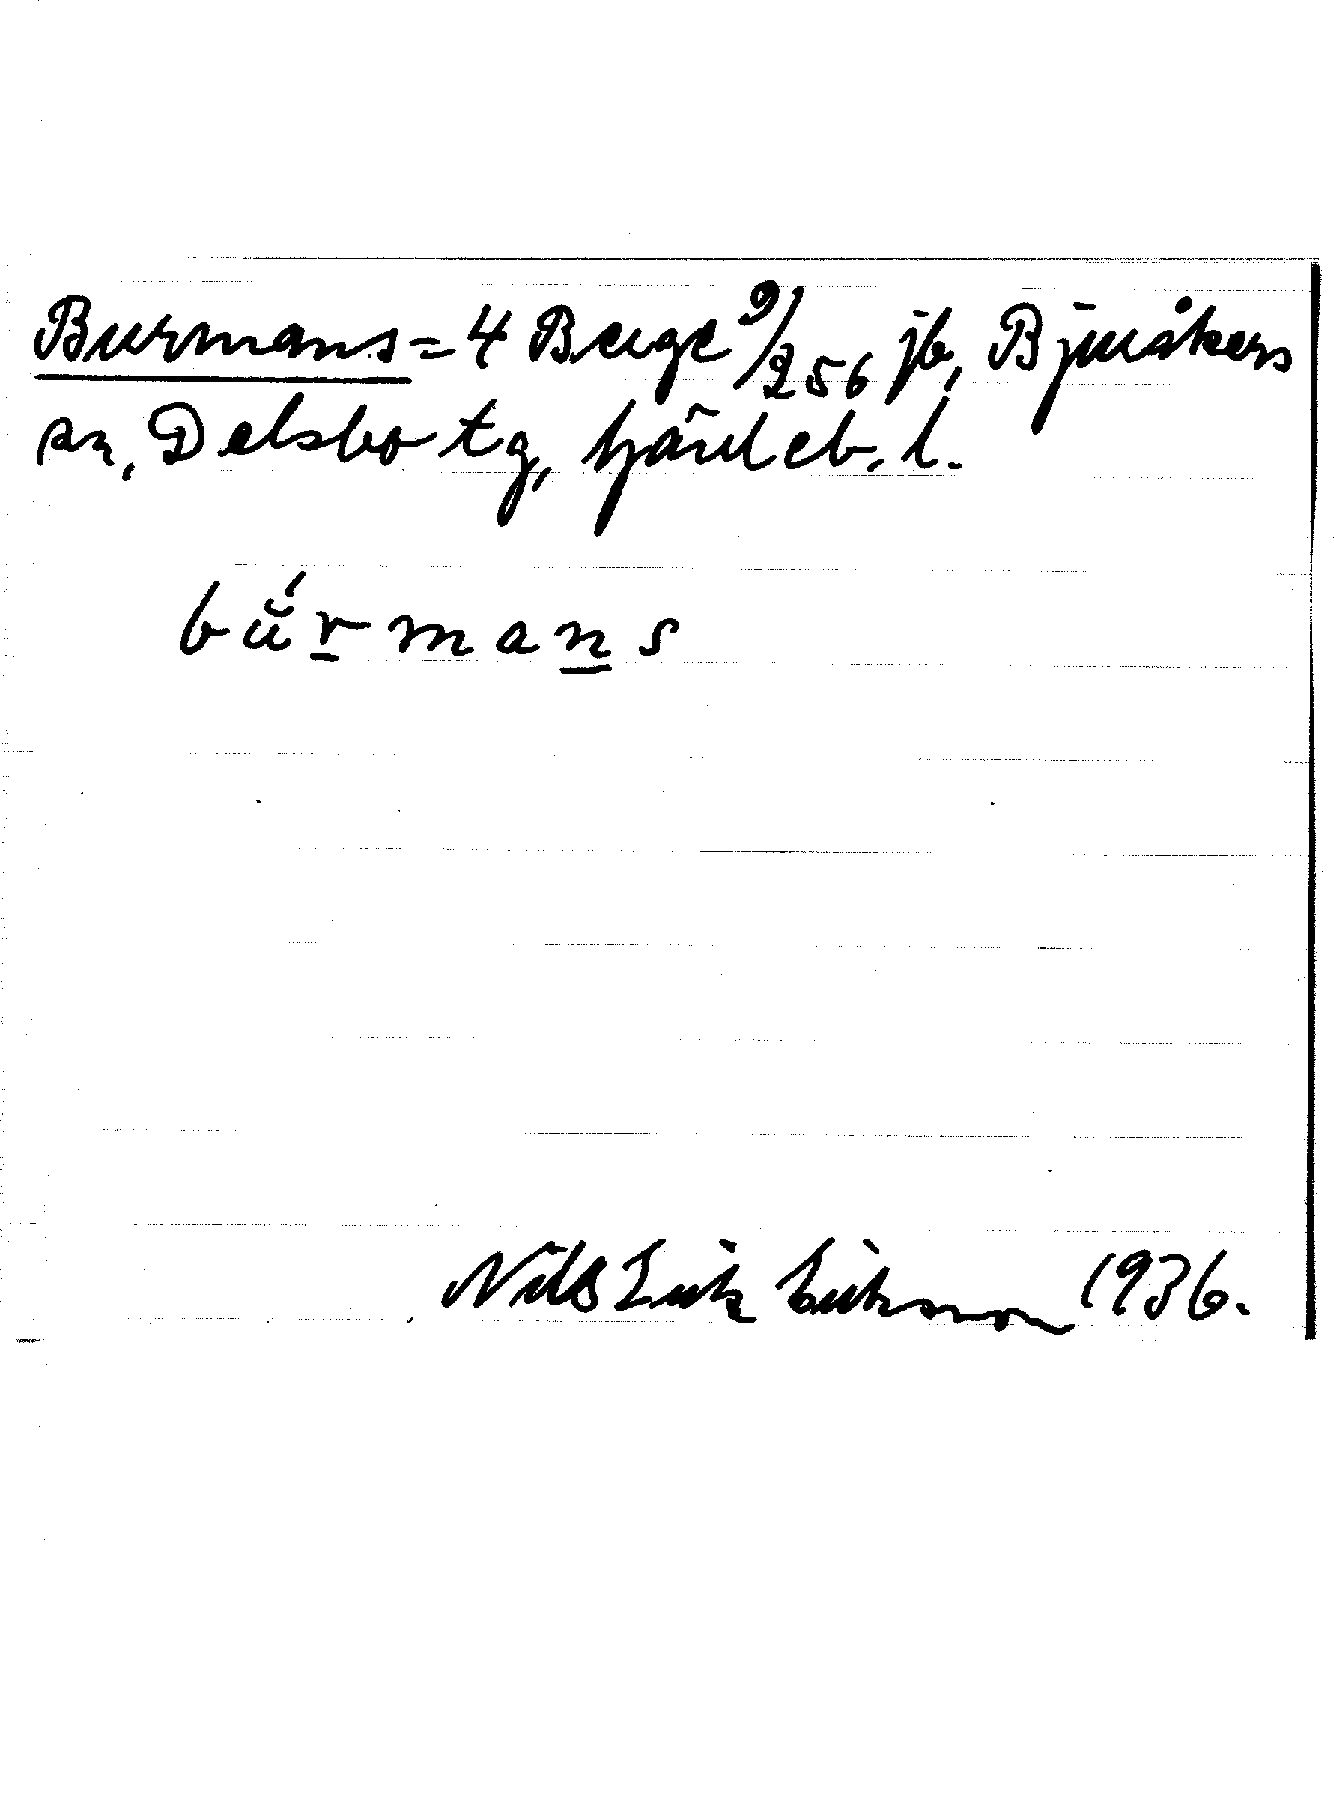 Burmans = 4 Berge 9/256 jb, Bjuråkers
sn, Delsbo tg, Gävleb. l.
bŭ́rmans
Nils Erik Eriksson 1936.